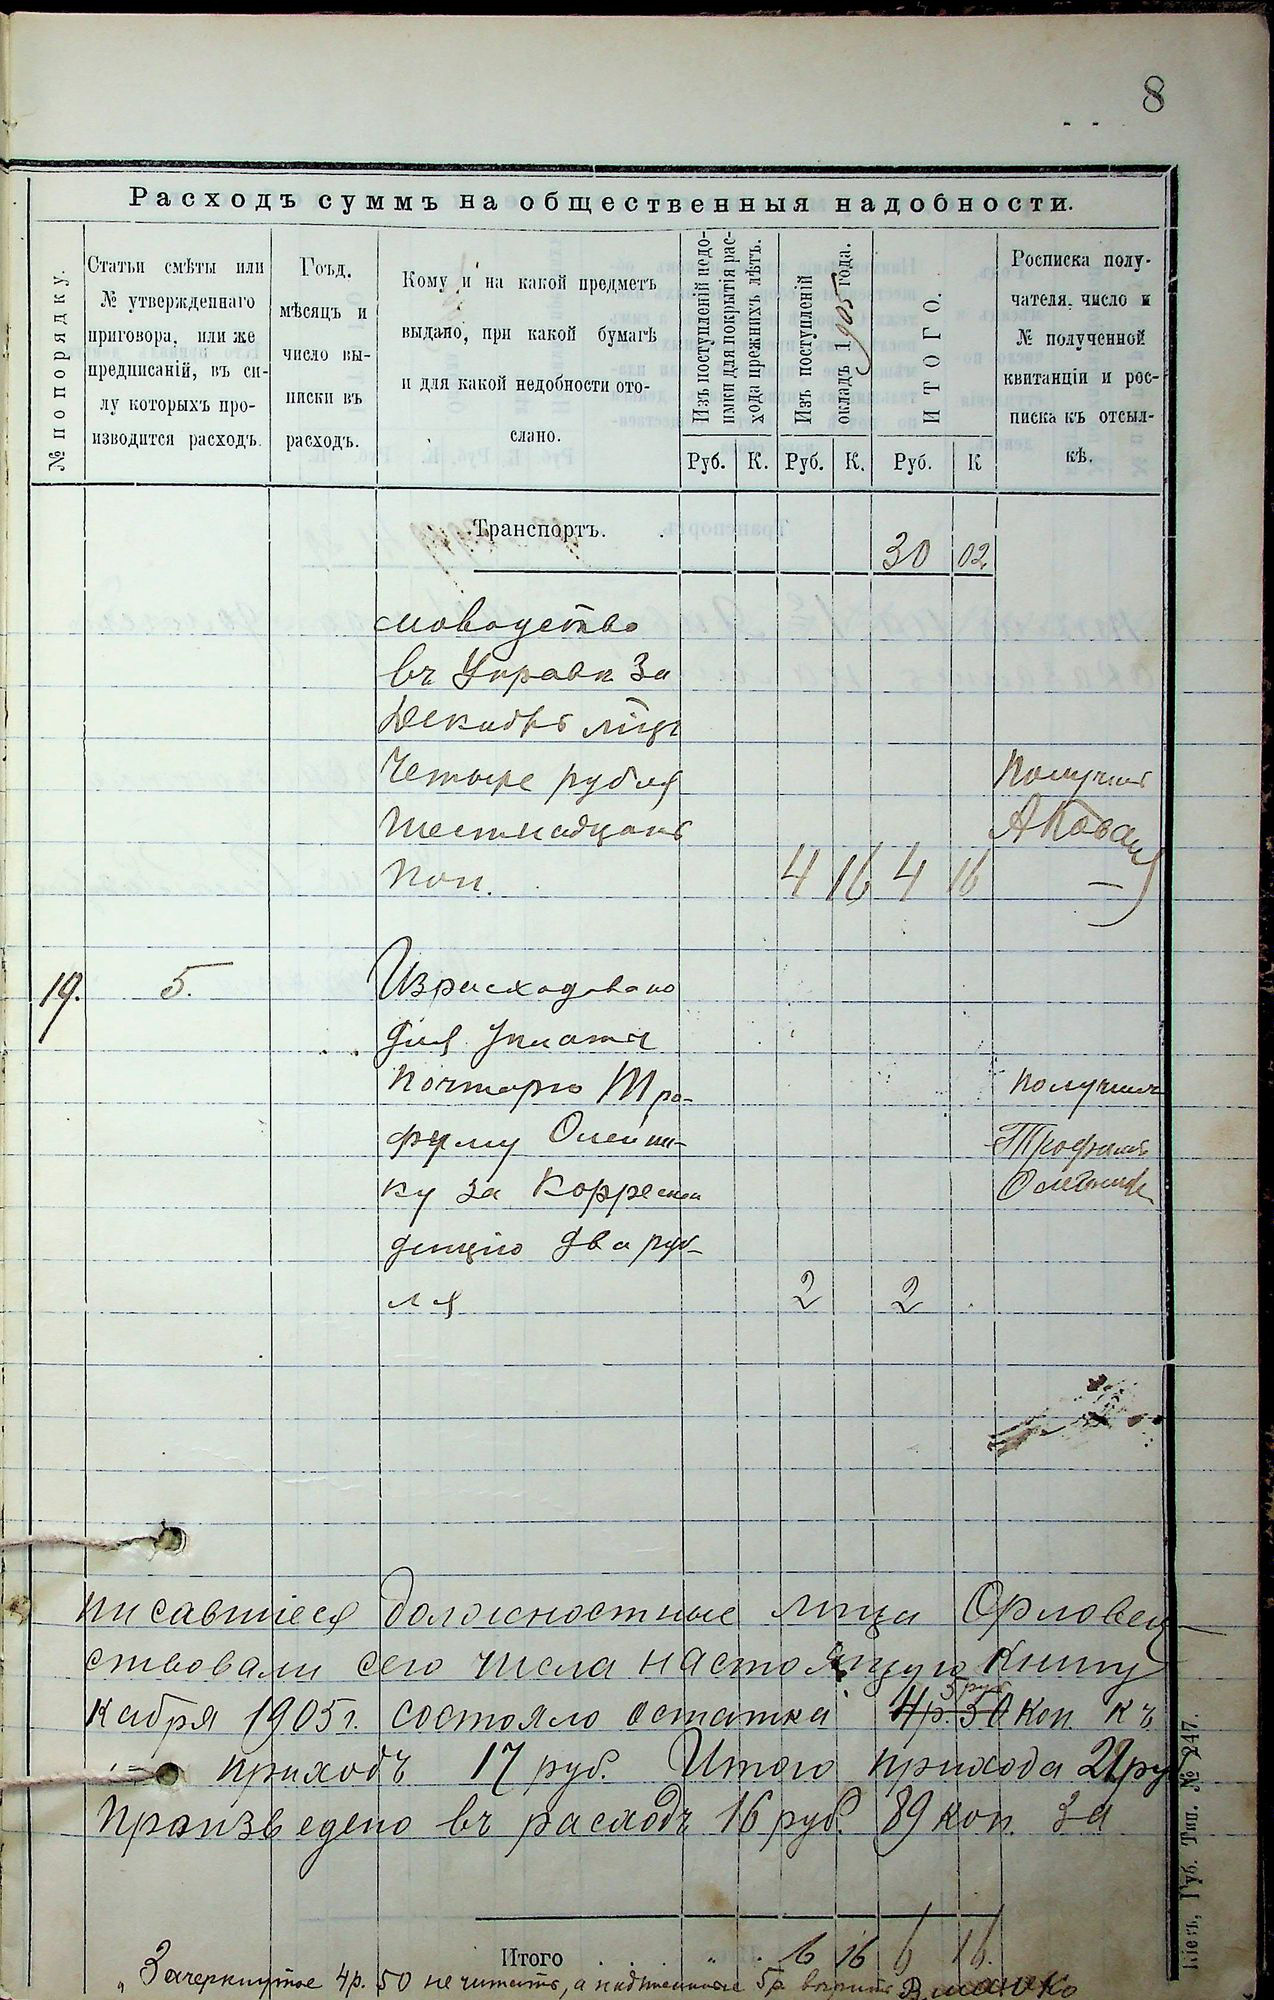 8
Расходъ суммъ на общественныя надобности.
№ по порядку.
Статьи смѣты или
№ утвержденнаго
приговора, или же
предписаній, въ си-
лу которыхъ про-
изводится расходъ.
Гоъд.
мѣсяцъ и
число вы-
писки въ
расходъ.
Кому и на какой предметъ
выдано, при какой бумагѣ
и для какой недобности ото-
слано.
Изъ поступленій недо-
имки для покрытія рас-
хода прежнихъ лѣтъ.
Изъ поступленій
окладъ 1905 года.
ИТОГО.
Росписка полу-
чателя, число и
№ полученной
квитанціи и рос-
писка къ отсыл-
кѣ.
Руб. К. Руб. К. Руб. К
Транспортъ. 30 02
моводство
въ Управѣ за
Декабрь мѣцъ
четыре рубля
Получилъ
шестнадцать
коп. 4 16 4 16
19. 5. Израсходовано
для уплаты
почтарю Тро- получилъ
фиму Олейни- Трофимъ
ку за Корреспон Олейникъ
денцію два руб-
ля 2 2
писавшіеся должностные лица Орловск
ствовали сего числа настоящую книгу
5 руб
кабря 1905 г. состояло остатка 4 р. 50 коп. къ
приходъ 17 руб. Итого прихода 22 ру
произведено въ расходъ 16 руб. 89 коп. за
Итого 6 16 6 16.
Зачеркнутое 4 р. 50 не читать, а надписанное 5 р вѣрить
Кіевъ, Губ. Тип. № 247.